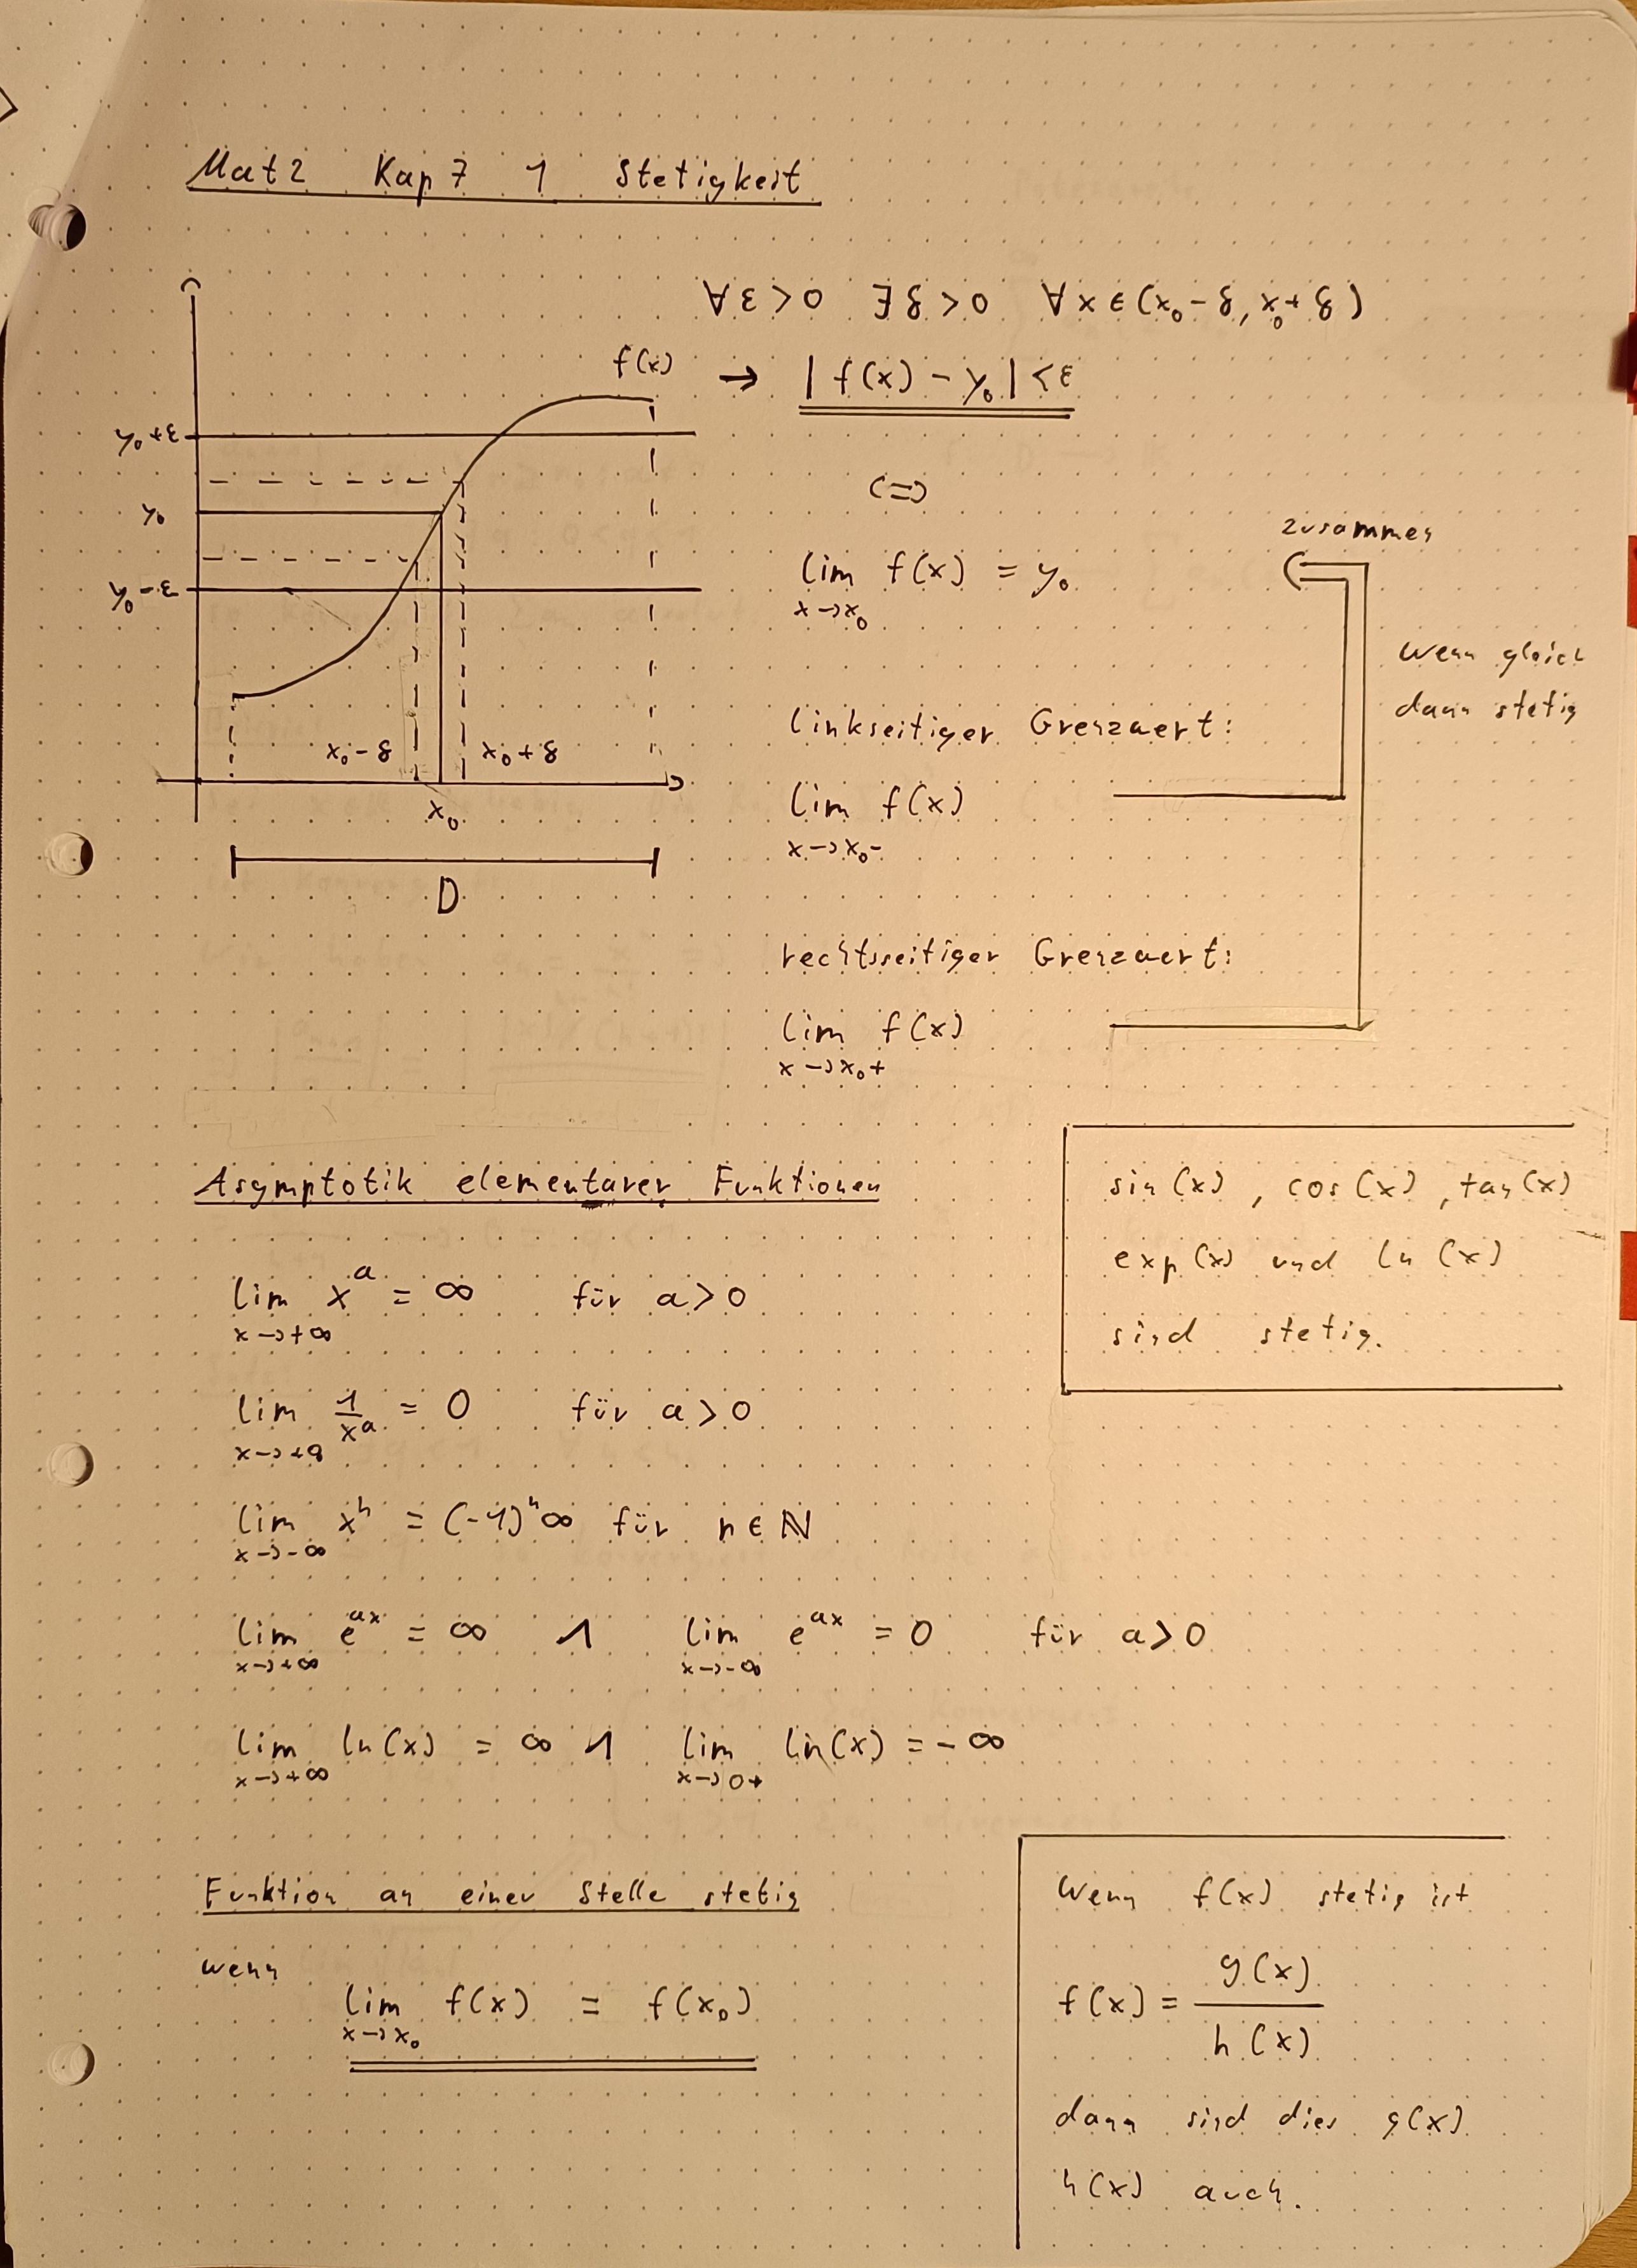 Mat2 Kap 7 1 Stetigkeit
∀ε>0 ∃δ>0 ∀x∈(x₀-δ, x₀+δ)
f(x)
→ |f(x) - y₀| < ε
y₀+ε
y₀
y₀-ε
x₀-δ
x₀+δ
x₀
D
<=>
lim f(x) = y₀
x→x₀
zusammen
wenn gleich
dann stetig
linkseitiger Grenzwert:
lim f(x)
x→x₀-
rechtsseitiger Grenzwert:
lim f(x)
x→x₀+
Asymptotik elementarer Funktionen
lim xᵃ = ∞ für a>0
x→+∞
lim 1/xᵃ = 0 für a>0
x→+∞
lim xⁿ = (-1)ⁿ∞ für n∈ℕ
x→-∞
lim eᵃˣ = ∞ ∧ lim eᵃˣ = 0 für a>0
x→+∞ x→-∞
lim ln(x) = ∞ ∧ lim ln(x) = -∞
x→+∞ x→0+
sin(x), cos(x), tan(x)
exp(x) und ln(x)
sind stetig.
Funktion an einer Stelle stetig
wenn
lim f(x) = f(x₀)
x→x₀
Wenn f(x) stetig ist
f(x) = g(x)/h(x)
dann sind dies g(x)
h(x) auch.